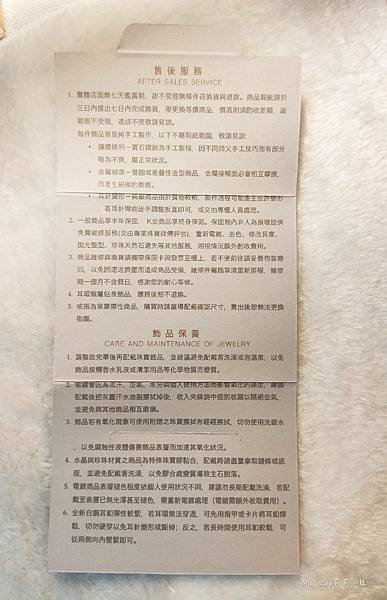 售後服務
AFTER SALES SERVICE
1. 實體店面無七天鑑賞期，故不受理無條件退換貨與退款。商品瑕疵請於
三日內提出七日內完成換貨，限更換等價商品，價高則酌收差額，逾
期恕不受理，造成不便敬請見諒。
每件飾品皆是純手工製作，以下不屬瑕疵範圍，敬請見諒：
• 鑲鑽排列－寶石鑲嵌為手工製程，因不同師父手工技巧而有部分
略為不齊，屬正常狀況。
• 金屬細痕－雙圈或重疊性造型商品，金屬接觸面必會相互摩擦，
而產生細微的劃痕。
• 耳針變形－純銀商品由於質地較軟，製作過程可能產生些許變形
若耳針彎曲徒手調整扳直即可，或交由專櫃人員處理。
2. 一般商品享半年保固，K金商品享終身保固。保固期內非人為損壞提供
免費維修服務(交由專業珠寶師傅評估)，重新電鍍、去色、修改長度、
拋光整型、珍珠天然石遺失等其他服務，則視情況額外酌收費用。
3. 商品維修與換貨請攜帶保固卡與發票至櫃上，若不便前往請妥善包裝寄
回，以免因運送擠壓而造成商品受損，維修件屬插單須重新排程，維修
期一個月不含假日，感謝您的耐心等候。
4. 耳環類屬貼身飾品，購買後恕不退換。
5. 戒指為常摩擦性商品，購買時請當場配戴確認尺寸，售出後恕無法更換
指圍。
飾品保養
CARE AND MAINTENANCE OF JEWELRY
1. 請整妝完畢後再配戴珠寶飾品，並建議避免配戴著洗澡或泡溫泉，以免
飾品接觸香水乳液或清潔用品等化學物質而變質。
2. 電鍍會因為流汗、空氣、水分與個人使用方法而影響氧化的速度，建議
配戴後把灰塵汗水油脂擦拭掉後，收入夾鏈袋中個別收藏以隔絕空氣，
並避免與其他飾品相互磨損。
3. 飾品若有氧化現象可使用附贈之珠寶擦拭布輕輕擦拭，切勿使用洗銀水
，以免腐蝕性液體傷害飾品表層而加速其氧化狀況。
4. 水晶與珍珠材質之商品為特殊珠寶膠黏合，配戴時請盡量拿取鏈條或底
座，並避免配戴著洗澡，以免膠台處變質導致主石脫落。
5. 電鍍商品表層褪色程度依個人使用狀況不同，建議勿長期配戴洗澡，若配
戴至表層已無光澤甚至褪色，需重新電鍍處理（電鍍需額外收取費用）。
6. 全新白鋼耳釦彈性較緊，若耳環無法穿透，可先用指甲或卡片將耳釦撐
鬆，切勿硬穿以免耳針變形或斷掉；反之，若長時間使用耳釦較鬆，可
從兩側向內壓緊即可。